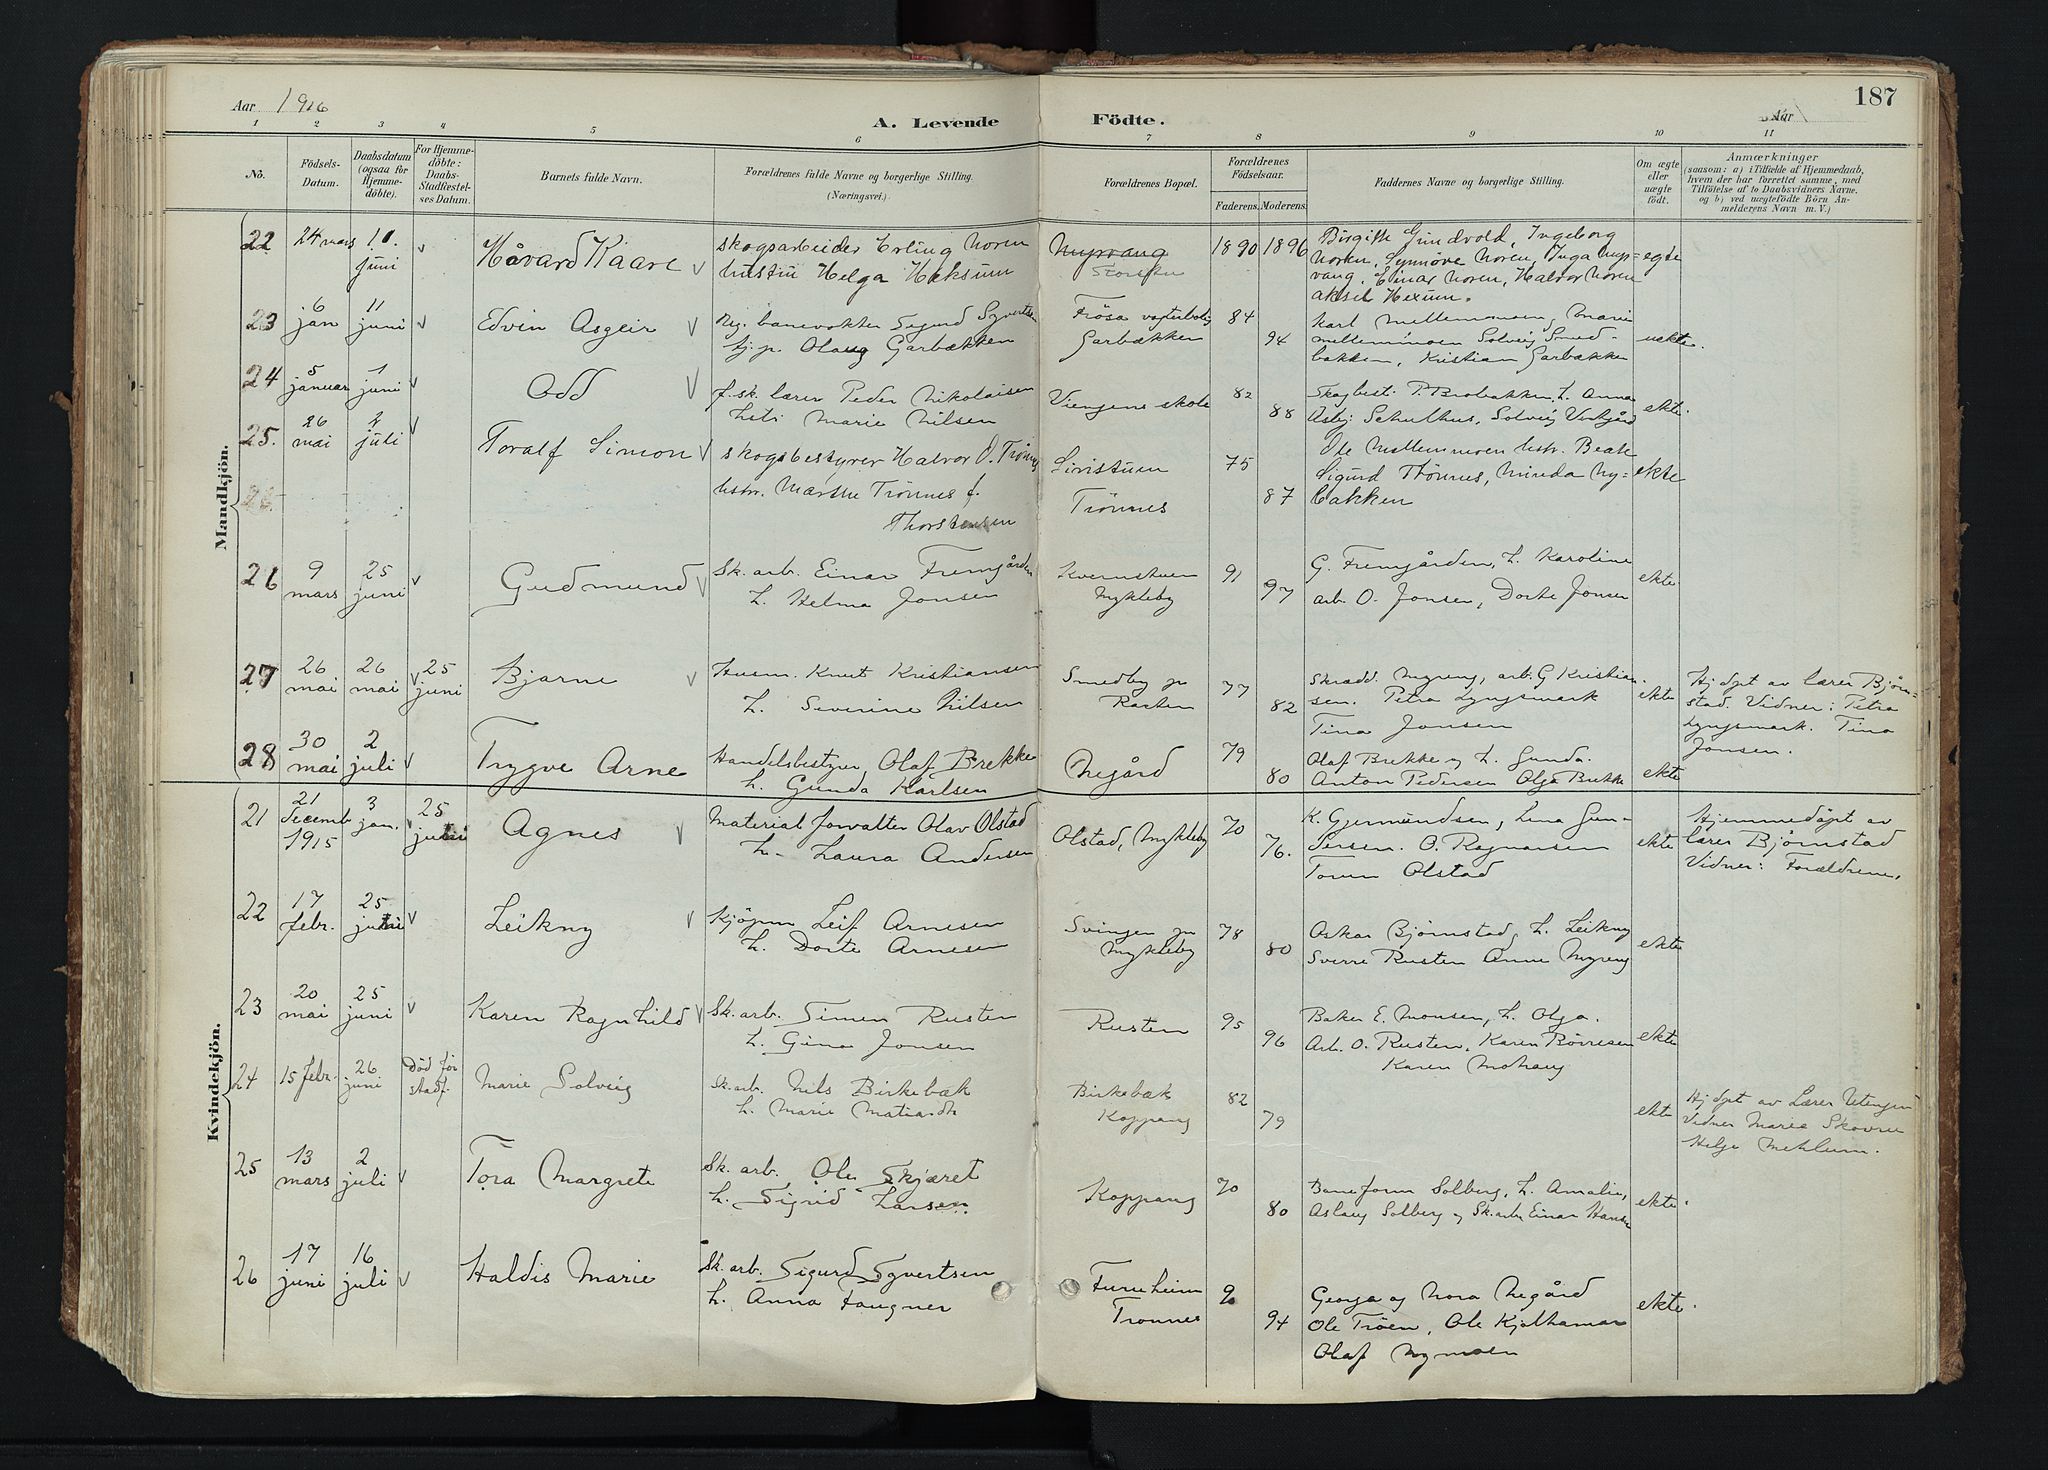 187
Aar 1916
Aar
A. Levende Födte.
1 2 3 4 5 6 7 8 9 10 11
No.
Födsels-Datum.
Daabsdatum (ogsaa for Hjemme-döbte).
For Hjemme-döbte: Daabs-Stadfæstel-ses Datum.
Barnets fulde Navn.
Forældrenes fulde Navne og borgerlige Stilling.
(Næringsvei.)
Forældrenes Bopæl.
Forældrenes Födselsaar.
Faderens. Moderens.
Faddernes Navne og borgerlige Stilling.
Om ægte eller uægte födt.
Anmærkninger
(saasom: a) i Tilfælde af Hjemmedaab,
hvem der har forrettet samme, med
Tilföielse af to Daabsvidners Navne,
og b) ved uægtefödte Börn An-
melderens Navn m. V.)
Mandkjön.
22 24 mars 11. juni Håvard Kaare
skogsarbeider Erling Noren
hustru Helga Heksum
Nyvang
Storsten
1890 1896
Birgitte Gundvold, Ingeborg
Noren, Synnöve Noren, Inga Nyr=
vang, Einar Noren, Halvor Noren
Aksel Hexum.
egte
23 6 jan 11 juni Edvin Asgeir
Rig. banevokter Sigurd Syvertsen
tj.p. Olaug Garbækken
Frösa vogterbolig
Garbækken
84 94
Karl Mellemmoen, Marie
Mellemmoen Solveig Smed-
bakken, Kristian Garbækken
uekte.
24 5 januar 1 juni Odd
f. sk. lærer Peder Nikolaisen
Lets Marie Nilsen
Viengens skole
82 88
Skogbest. P. Brobakken, h. Anna
Asbj. Schulhus, Solveig
ekte.
25. 26 mai 2 juli Toralf Simon
skogsbestyrer Halvor O. Trönnes
hstr. Marthe Trönnes f.
Thorstensen
Sivistuen
Trönnes
75 87
Ole Mellemmoen hstr. Beate
Sigurd Thönnes, Minda Ny=
bakken
ekte
26
26 9 mars 25 juni Gudmund
Sk. arb. Einar Fremgården
h. Helma Jonsen
Kvernstuen
Mykleby
91 97
G. Fremgården, h. Karoline
arb. O. Jonsen, Dorte Jonsen
ekte
27 26 mai 26 mai 25 juni Bjarne
Husm. Knut Kristiansen
h. Severine Nilsen
Smedby pr
Rasten
77 82
Skrædd. Myreng, arb. G Kristian-
sen. Petra Lyngsmark
Tina Jonsen
ekte
Hjdøpt av lærer Bjørn=
stad. Vidner: Petra
Lyngsmark. Tina
Jonsen.
28 30 mai 2 juli Trygve Arne
Handelsbestyrer Olaf Brekke
h. Gunda Karlsen
Negård
79 80
Olaf Brekke og h. Gunda.
Anton Pedersen Olga Brekke
ekte
Kvindekjön.
21 21 decemb 1915 3 jan. 25 juni Agnes
Materialforvalter Olav Olstad
h. Laura Andersen
Olstad, Mykleby
70 76.
K. Gjermundsen, Lina Gun-
dersen. O. Ragnarsen
Toren Olstad
ekte
Hjemmedöpt av
lærer Bjørnstad
Vidner: Forældrene.
22 17 febr. 25 juni Leikny
Kjöpm Leif Arnesen
h. Dorte Arnesen
Svingen pr
Mykleby
78 80
Askar Bjørnstad, h. Leikny
Sverre Rusten Anne Myreng
ekte
23 20 mai 25 juni Karen Ragnhild
Sk. arb. Simen Rusten
h. Gina Jonsen
Rusten
95 96
Baker E. Monsen, h. Olga.
Arb. O. Rusten, Karen Börresen
Karen Mohaug
ekte
24 15 febr. 26 juni Död för stadf. Marie Solveig
Sk. arb. Nils Birkebæk
h. Marie
Birkebæk
Koppang
82 79
ekte
Hjdøpt av Lærer Utengen
Vidner Marie Skovru
Helge Mehlum.
25 13 mars 2 juli Tora Margrete
Sk. arb. Ole Skjæret
h. Sigrid Larsen
Koppang
70 80
Baneform Solberg, h. Amalie,
Aslaug Solberg og Sk.arb. Einar Hansen
ekte.
26 17 juni 16 juli Haldis Marie
Sk. arb. Sigurd Syvertsen
h. Anna Faugner
Furuheim
Trønnes
90 94
Georga og Nora Negård
Ole Tröen, Ole Kjølhamar
Olaf Nymoen
ekte.